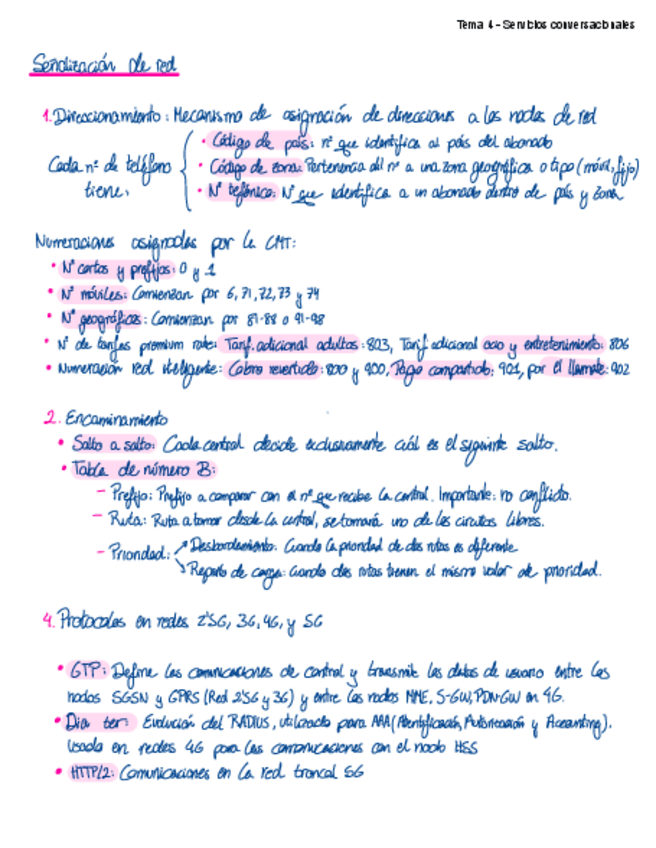 Tema 4 - Servicios conversacionales
Señalización de red
1. Direccionamiento: Mecanismo de asignación de direcciones a los nodos de red
Cada nº de teléfono tiene:
• Código de país: nº que identifica al país del abonado
• Código de zona: Pertenencia del nº a una zona geográfica o tipo (móvil, fijo)
• Nº telefónico: Nº que identifica a un abonado dentro de país y zona
Numeraciones asignadas por la CMT:
• Nº cortos y prefijos: 0 y 1
• Nº móviles: Comienzan por 6, 71, 72, 73 y 74
• Nº geográficos: Comienzan por 81-88 o 91-98
• Nº de tarifas premium rate: Tarif. adicional adultos: 803, Tarif adicional ocio y entretenimiento: 806
• Numeración red inteligente: Cobro revertido: 800 y 900, Pago compartido: 901, por el llamante: 902
2. Encaminamiento
• Salto a salto: Cada central decide exclusivamente cuál es el siguiente salto.
• Tabla de número B:
– Prefijo: Prefijo a comparar con el nº que recibe la central. Importante: no conflicto.
– Ruta: Ruta a tomar desde la central, se tomará uno de los circuitos libres.
– Prioridad:
Desbordamiento: Cuando la prioridad de dos rutas es diferente
Reparto de carga: Cuando dos rutas tienen el mismo valor de prioridad.
4. Protocolos en redes 2'5G, 3G, 4G, y 5G
• GTP: Define las comunicaciones de control y transmite los datos de usuario entre los
nodos SGSN y GPRS (Red 2'5G y 3G) y entre los nodos MME, S-GW, PDN-GW en 4G.
• Diameter: Evolución del RADIUS, utilizado para AAA (Autenticación, Autorización y Accounting).
Usado en redes 4G para las comunicaciones con el nodo HSS
• HTTP/2: Comunicaciones en la red troncal 5G